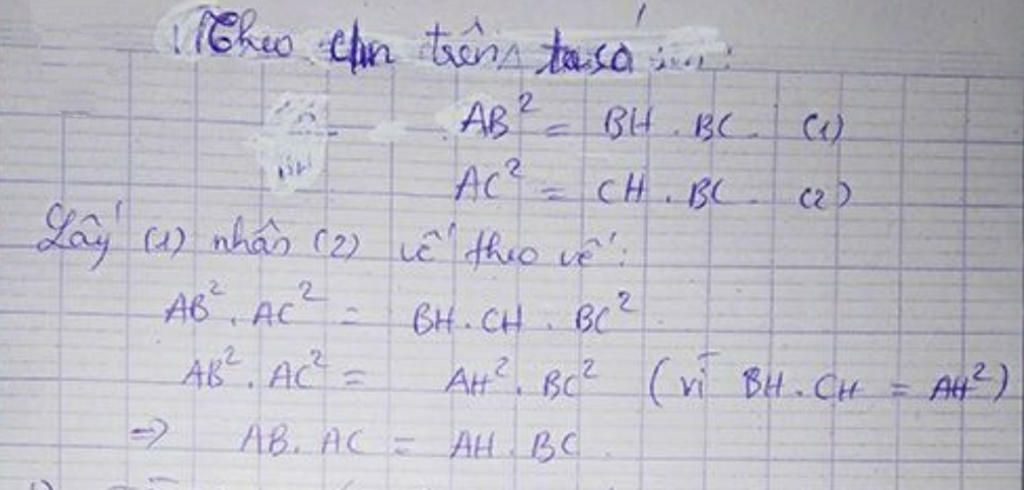 Theo cm trên ta có
AB² = BH . BC. (1)
AC² = CH . BC. (2)
Lấy (1) nhân (2) vế theo vế:
AB² . AC² = BH . CH . BC²
AB² . AC² = AH² . BC² (vì BH . CH = AH²)
=> AB . AC = AH . BC.